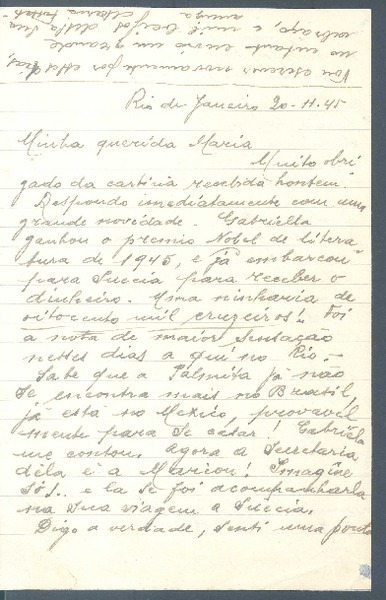 Vou escrever novamente por estes dias,
no entanto envio um grande
abraço, e mil beijos desta sua
amiga
Rio de Janeiro 20-11-45
Minha querida Maria
Muito obri
gado da cartinha recebida hontem.
Respondo imediatamente com uma
grande novidade. Gabriella
ganhou o premio Nobel de litera
tura de 1945, e já embarcou
para Suecia para receber o
dinheiro. Uma ninharia de
oitocento mil cruzeiros! Foi
a nota de maior sensação
nestes dias a qui no Rio.-
Sabe que a Palmita já não
se encontra mais no Brasil,
já está no Mexico, provavel
mente para se casar! Gabriela
me contou. Agora a Secretaria
déla é a Maricou! Imagine
só!.. e la se foi acompanharla
na sua viagem a Suecia.
Digo a verdade, senti uma ponta